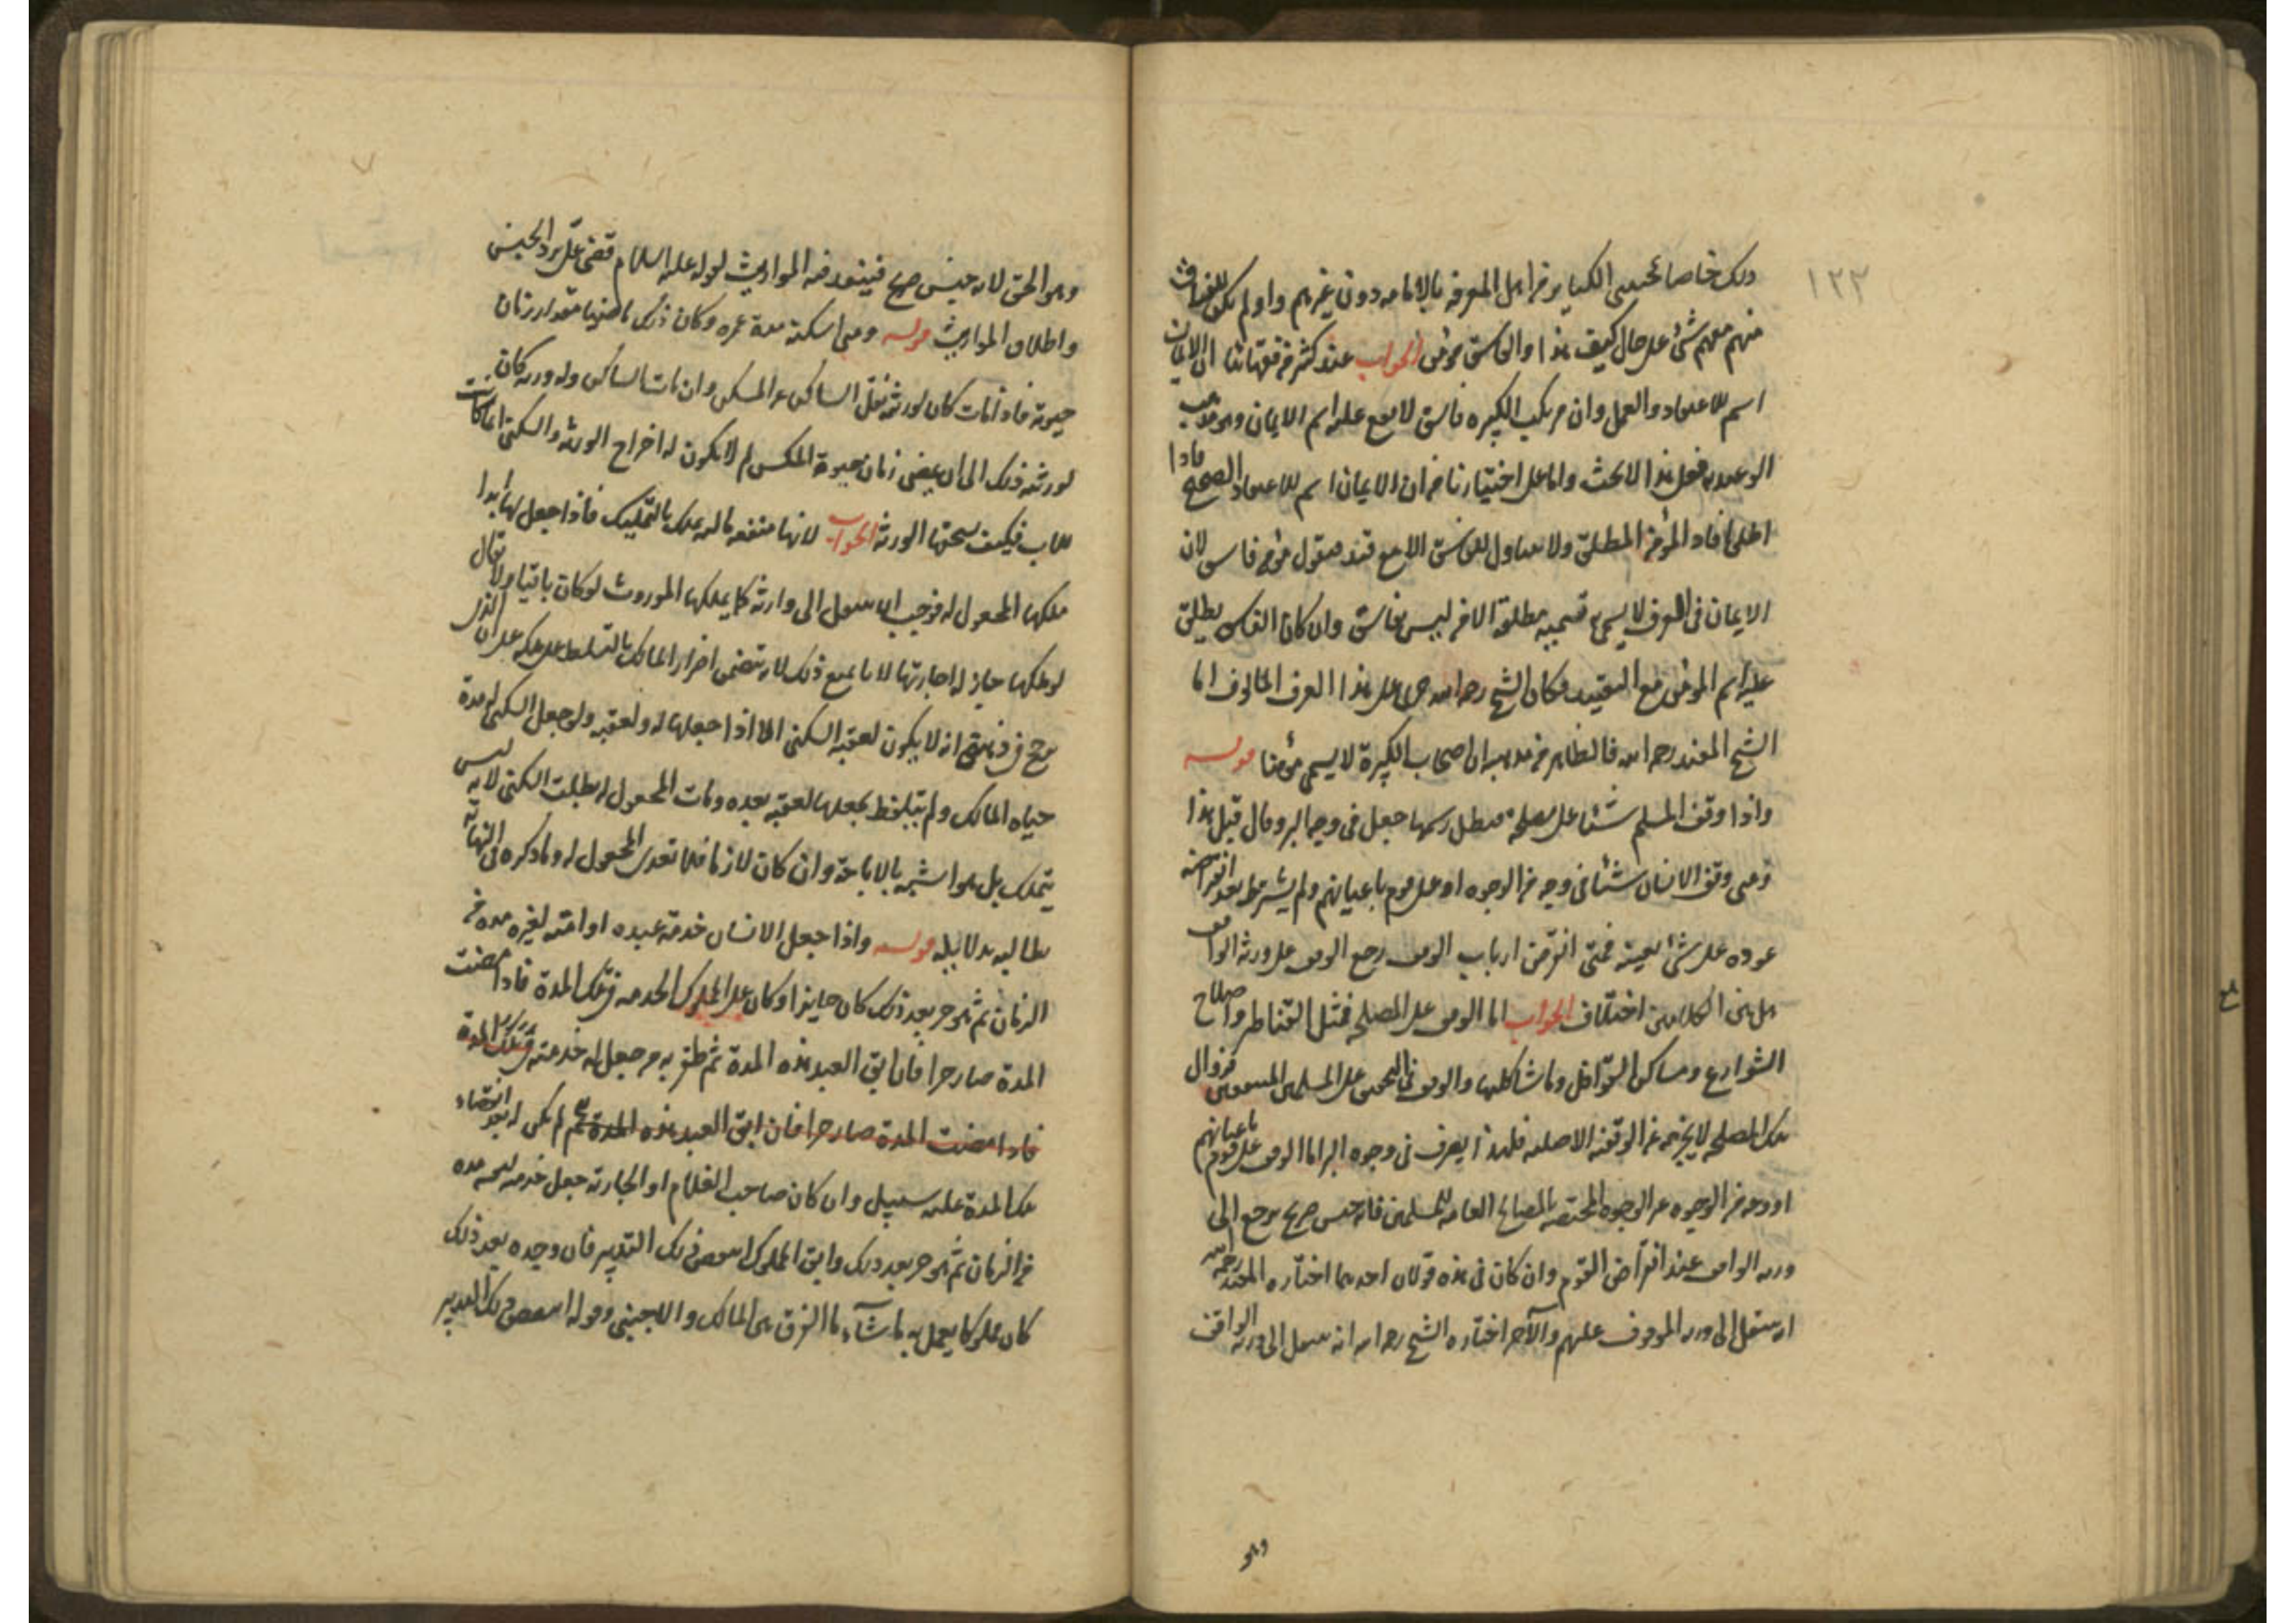 ١٢٣
ذلك خاصا لمجتنبى الكبائر من اهل المعرفة بالامامة دون غيرهم واو لم يكن للفساق
منهم معهم شئ على حال كيف هذا والفاسق مؤمن الجواب عند كثر من فقهائنا ان الايمان
اسم للاعتقاد والعمل وان مرتكب الكبيرة فاسق لا يقع عليه اسم الايمان وهو مذهب
الوعيدية فعلى هذا لا بحث واما على اختيارنا من ان الايمان اسم للاعتقاد الصحيح فاذا
اطلق افاد المؤمن المطلق ولا يتناول الفاسق الا مع قيد فيقول مؤمن فاسق لان
الايمان فى العرف لا يسمى به تسمية مطلقة الا من ليس بفاسق وان كان الفاسق يطلق
عليه اسم المؤمن مع التقييد فكان الشيخ رحمه الله جرى على هذا العرف المألوف اما
الشيخ المفيد رحمه الله فالظاهر من مذهبه ان اصحاب الكبيرة لا يسمى مؤمنا قوله
واذا وقف المسلم شيئا على مصلحة فبطل رسمها جعل فى وجه البر وقال قبل هذا
ومتى وقف الانسان شيئا فى وجه من الوجوه او على قوم باعيانهم ولم يشرط بعد انقراضهم
عوده على شئ بعينه فمتى انقرض ارباب الوقف رجع الوقف على ورثة الواقف
هل بين الكلامين اختلاف الجواب اما الوقف على المصلحة فمثل القناطر واصلاح
الشوارع ومساكن القوافل وما شاكلها والوقف فى التحقيق على المسلمين المنتفعين فزوال
تلك المصلحة لا يخرجه عن الوقفية الاصلية فلهذا يصرف فى وجوه البر اما الوقف على قوم باعيانهم
او وجه من الوجوه غير الوجوه المختصة بالمصالح العامة للمسلمين فانه حبس صريح يرجع الى
ورثة الواقف عند انقراض القوم وان كان فى هذه قولان احدهما اختاره المفيد رحمه الله
انه ينتقل الى ورثة الموقوف عليهم والآخر اختاره الشيخ رحمه الله انه ينتقل الى ورثة الواقف
وهو
وهو الحق لانه حبس صريح فينفذ فيه المواريث لقوله عليه السلام قضى على برد الحبيس
واطلاق المواريث قوله ومتى اسكنه مدة عمره وكان ذلك ماضيا مقدار زمان
حيوته فاذا مات كان لورثته نقل الساكن عن المسكن وان مات الساكن وله ورثة كان
لورثته ذلك الى ان يمضى زمان حيوة المسكن ثم لا يكون له اخراج الورثة والسكنى انما كانت
للاب فكيف يستحقها الورثة الجواب لانها منفعة مالية يملك بالتمليك فاذا جعل لها ابدا
ملكها المجعول له فوجب ان ينتقل الى وارثه كما يملكها الموروث لو كان باقيا ولا يقال
لو ملكها جاز له اجارتها لانا نمنع ذلك لانه يتضمن اضرار المالك بالتسلط على ملكه على ان الذى
يرجح فى نفسى انه لا يكون لعقبه السكنى الا اذا جعلها له ولعقبه ولو جعل السكنى له مدة
حياة المالك ولم يتلفظ بجعلها لعقبه بعده ومات المجعول له بطلت السكنى لانه ليس
تمليك بل هو اشبه بالاباحة وان كان لازما فلا تعدى المجعول له وما ذكره فى النهاية
نطالبه بدلايله قوله واذا جعل الانسان خدمة عبده او امته لغيره مدة من
الزمان ثم هو حر بعد ذلك كان جايزا وكان على المملوك الخدمة فى تلك المدة فاذا مضت
المدة صار حرا فان ابق العبد هذه المدة ثم ظفر به من جعل له خدمته فى تلك المدة
فاذا مضت المدة صار حرا فان ابق العبد هذه المدة ثم لم يكن له بعد انقضاء
تلك المدة عليه سبيل وان كان صاحب الغلام او الجارية جعل خدمته لنفسه مدة
من الزمان ثم هو حر بعد ذلك وابق المملوك انتقض ذلك التدبير فان وجده بعد ذلك
كان مملوكا يعمل به ما شآء ما الفرق بين المالك والاجنبى وقوله انتقض ذلك التدبير